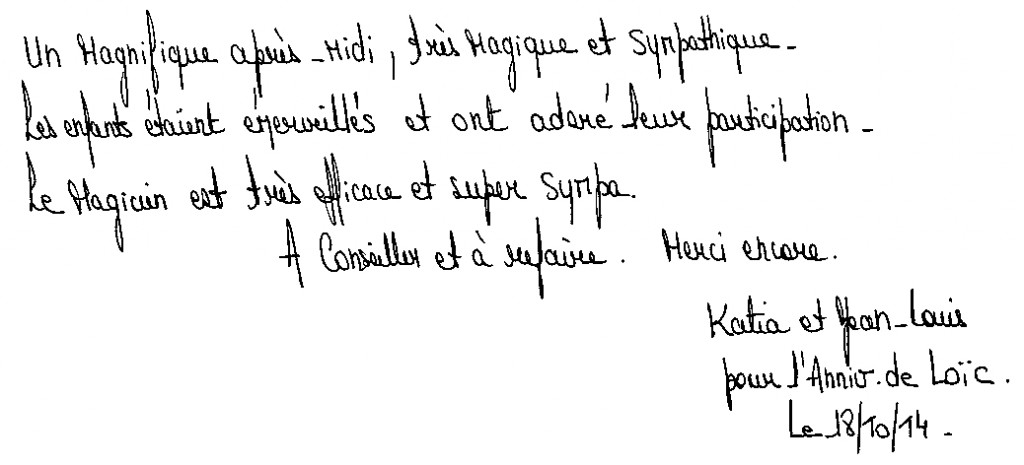 Un Magnifique après-Midi, très Magique et Sympathique-
Les enfants étaient émerveillés et ont adoré leur participation-
Le Magicien est très efficace et super Sympa.
A Conseiller et à refaire. Merci encore.
Katia et Jean-Louis
pour l'Anniv. de Loïc.
Le 18/10/14-